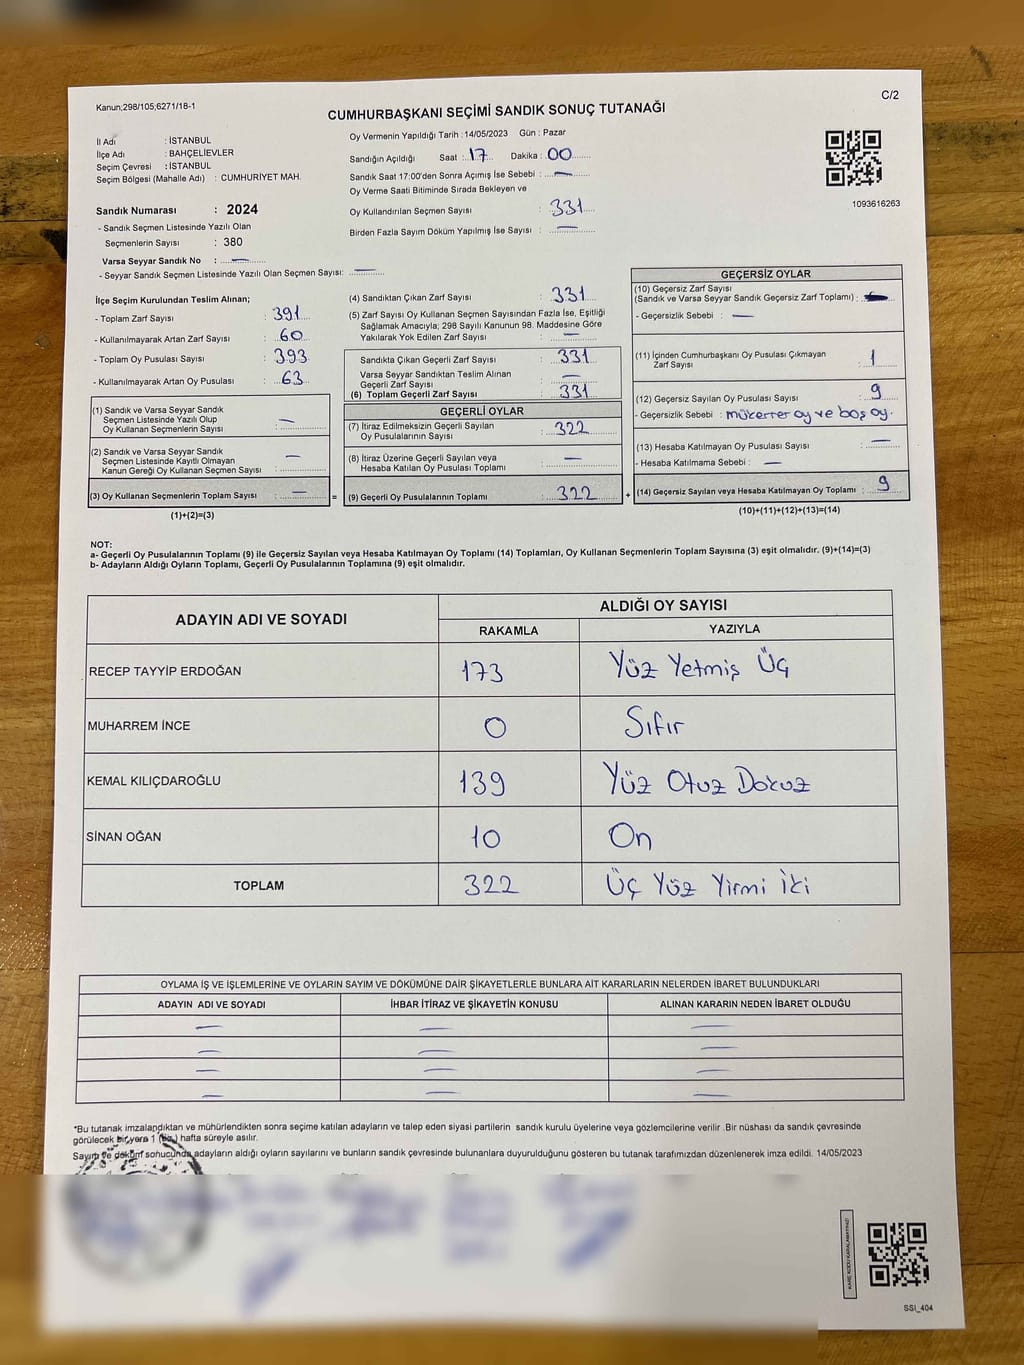 Kanun;298/105;6271/18-1
C/2
CUMHURBAŞKANI SEÇİMİ SANDIK SONUÇ TUTANAĞI
İl Adı : İSTANBUL
İlçe Adı : BAHÇELİEVLER
Seçim Çevresi : İSTANBUL
Seçim Bölgesi (Mahalle Adı) : CUMHURİYET MAH.
Sandık Numarası : 2024
- Sandık Seçmen Listesinde Yazılı Olan
Seçmenlerin Sayısı : 380
Varsa Seyyar Sandık No : —
- Seyyar Sandık Seçmen Listesinde Yazılı Olan Seçmen Sayısı: —
Oy Vermenin Yapıldığı Tarih : 14/05/2023 Gün : Pazar
Sandığın Açıldığı Saat : 17 Dakika : 00
Sandık Saat 17:00'den Sonra Açımış İse Sebebi : —
Oy Verme Saati Bitiminde Sırada Bekleyen ve
Oy Kullandırılan Seçmen Sayısı : 331
Birden Fazla Sayım Döküm Yapılmış İse Sayısı : —
1093616263
İlçe Seçim Kurulundan Teslim Alınan;
- Toplam Zarf Sayısı : 391
- Kullanılmayarak Artan Zarf Sayısı : 60
- Toplam Oy Pusulası Sayısı : 393
- Kullanılmayarak Artan Oy Pusulası : 63
(1) Sandık ve Varsa Seyyar Sandık
Seçmen Listesinde Yazılı Olup
Oy Kullanan Seçmenlerin Sayısı : —
(2) Sandık ve Varsa Seyyar Sandık
Seçmen Listesinde Kayıtlı Olmayan
Kanun Gereği Oy Kullanan Seçmen Sayısı : —
(3) Oy Kullanan Seçmenlerin Toplam Sayısı : — =
(1)+(2)=(3)
(4) Sandıktan Çıkan Zarf Sayısı : 331
(5) Zarf Sayısı Oy Kullanan Seçmen Sayısından Fazla İse, Eşitliği
Sağlamak Amacıyla; 298 Sayılı Kanunun 98. Maddesine Göre
Yakılarak Yok Edilen Zarf Sayısı : —
Sandıkta Çıkan Geçerli Zarf Sayısı : 331
Varsa Seyyar Sandıktan Teslim Alınan
Geçerli Zarf Sayısı : —
(6) Toplam Geçerli Zarf Sayısı : 331
GEÇERLİ OYLAR
(7) İtiraz Edilmeksizin Geçerli Sayılan
Oy Pusulalarının Sayısı : 322
(8) İtiraz Üzerine Geçerli Sayılan veya
Hesaba Katılan Oy Pusulası Toplamı : —
(9) Geçerli Oy Pusulalarının Toplamı : 322 +
GEÇERSİZ OYLAR
(10) Geçersiz Zarf Sayısı
(Sandık ve Varsa Seyyar Sandık Geçersiz Zarf Toplamı) :
- Geçersizlik Sebebi : —
(11) İçinden Cumhurbaşkanı Oy Pusulası Çıkmayan
Zarf Sayısı : 1
(12) Geçersiz Sayılan Oy Pusulası Sayısı : 9
- Geçersizlik Sebebi : mükerrer oy ve boş oy.
(13) Hesaba Katılmayan Oy Pusulası Sayısı : —
- Hesaba Katılmama Sebebi : —
(14) Geçersiz Sayılan veya Hesaba Katılmayan Oy Toplamı : 9
(10)+(11)+(12)+(13)=(14)
NOT:
a- Geçerli Oy Pusulalarının Toplamı (9) ile Geçersiz Sayılan veya Hesaba Katılmayan Oy Toplamı (14) Toplamları, Oy Kullanan Seçmenlerin Toplam Sayısına (3) eşit olmalıdır. (9)+(14)=(3)
b- Adayların Aldığı Oyların Toplamı, Geçerli Oy Pusulalarının Toplamına (9) eşit olmalıdır.
ADAYIN ADI VE SOYADI
ALDIĞI OY SAYISI
RAKAMLA YAZIYLA
RECEP TAYYİP ERDOĞAN 173 Yüz Yetmiş Üç
MUHARREM İNCE 0 Sıfır
KEMAL KILIÇDAROĞLU 139 Yüz Otuz Dokuz
SİNAN OĞAN 10 On
TOPLAM 322 Üç Yüz Yirmi İki
OYLAMA İŞ VE İŞLEMLERİNE VE OYLARIN SAYIM VE DÖKÜMÜNE DAİR ŞİKAYETLERLE BUNLARA AİT KARARLARIN NELERDEN İBARET BULUNDUKLARI
ADAYIN ADI VE SOYADI İHBAR İTİRAZ VE ŞİKAYETİN KONUSU ALINAN KARARIN NEDEN İBARET OLDUĞU
— — —
— — —
— — —
— — —
*Bu tutanak imzalandıktan ve mühürlendikten sonra seçime katılan adayların ve talep eden siyasi partilerin sandık kurulu üyelerine veya gözlemcilerine verilir .Bir nüshası da sandık çevresinde
görülecek bir yere 1 hafta süreyle asılır.
Sayım ve döküm sonucunda adayların aldığı oyların sayılarını ve bunların sandık çevresinde bulunanlara duyurulduğunu gösteren bu tutanak tarafımızdan düzenlenerek imza edildi. 14/05/2023
KARE KODU KARALAMAYINIZ!
SSI_404